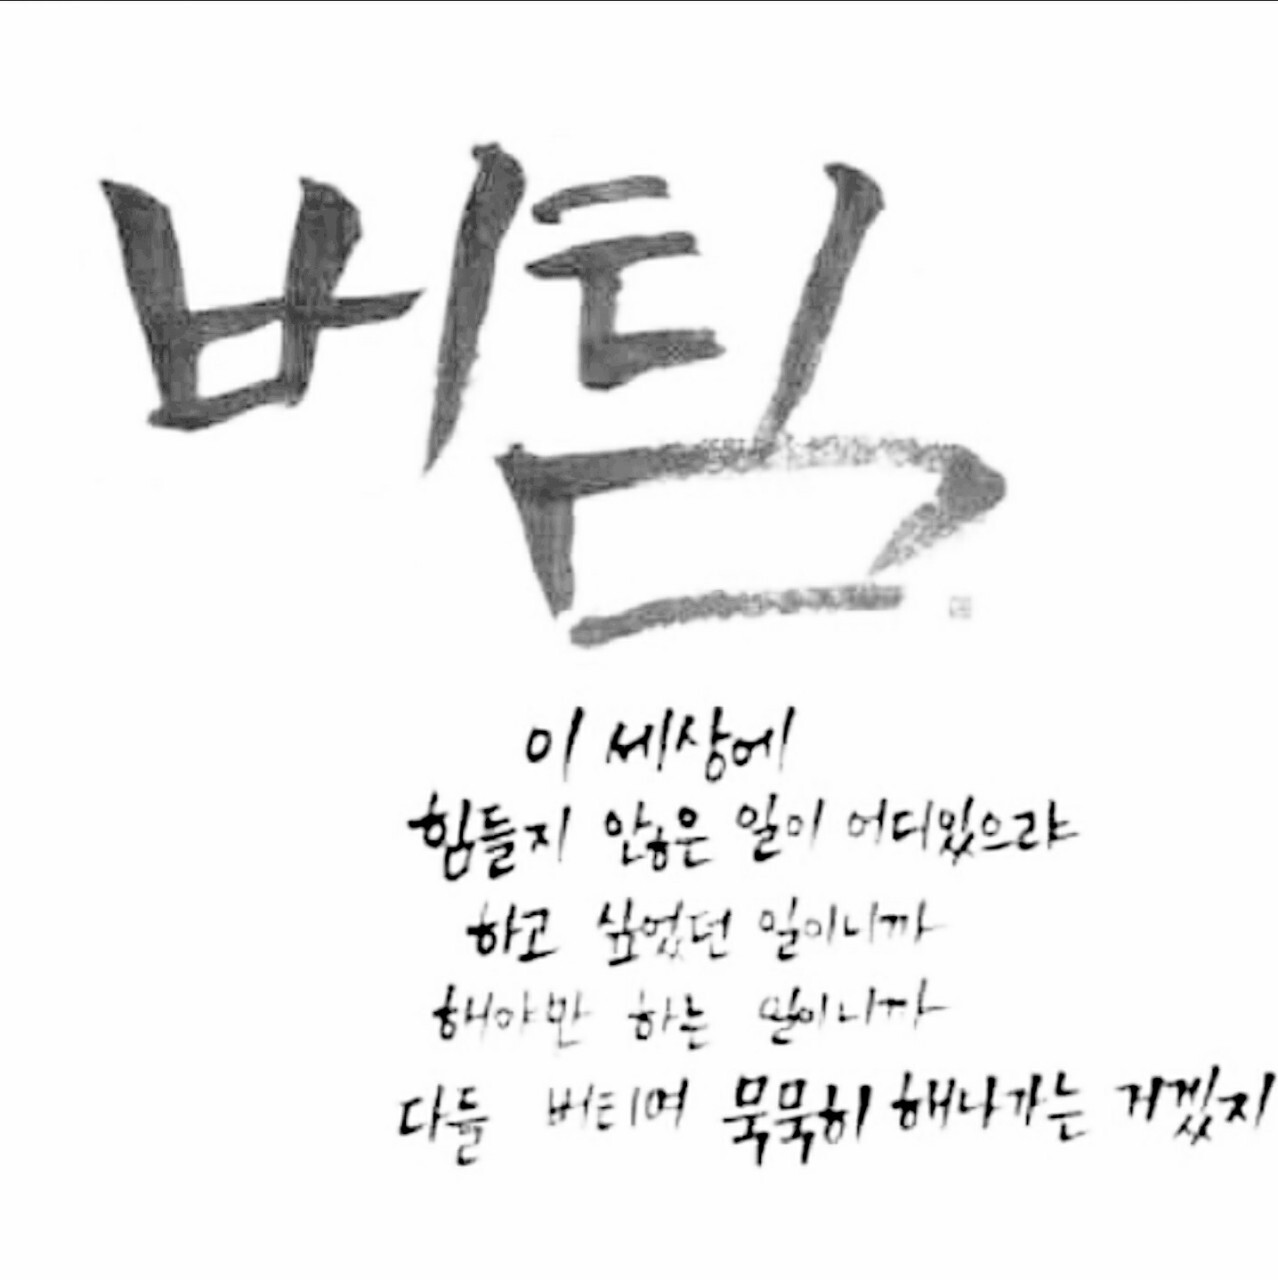 버팀
이 세상에
힘들지 않은 일이 어디있으랴
하고 싶었던 일이니까
해야만 하는 일이니까
다들 버티며 묵묵히 해나가는 거겠지